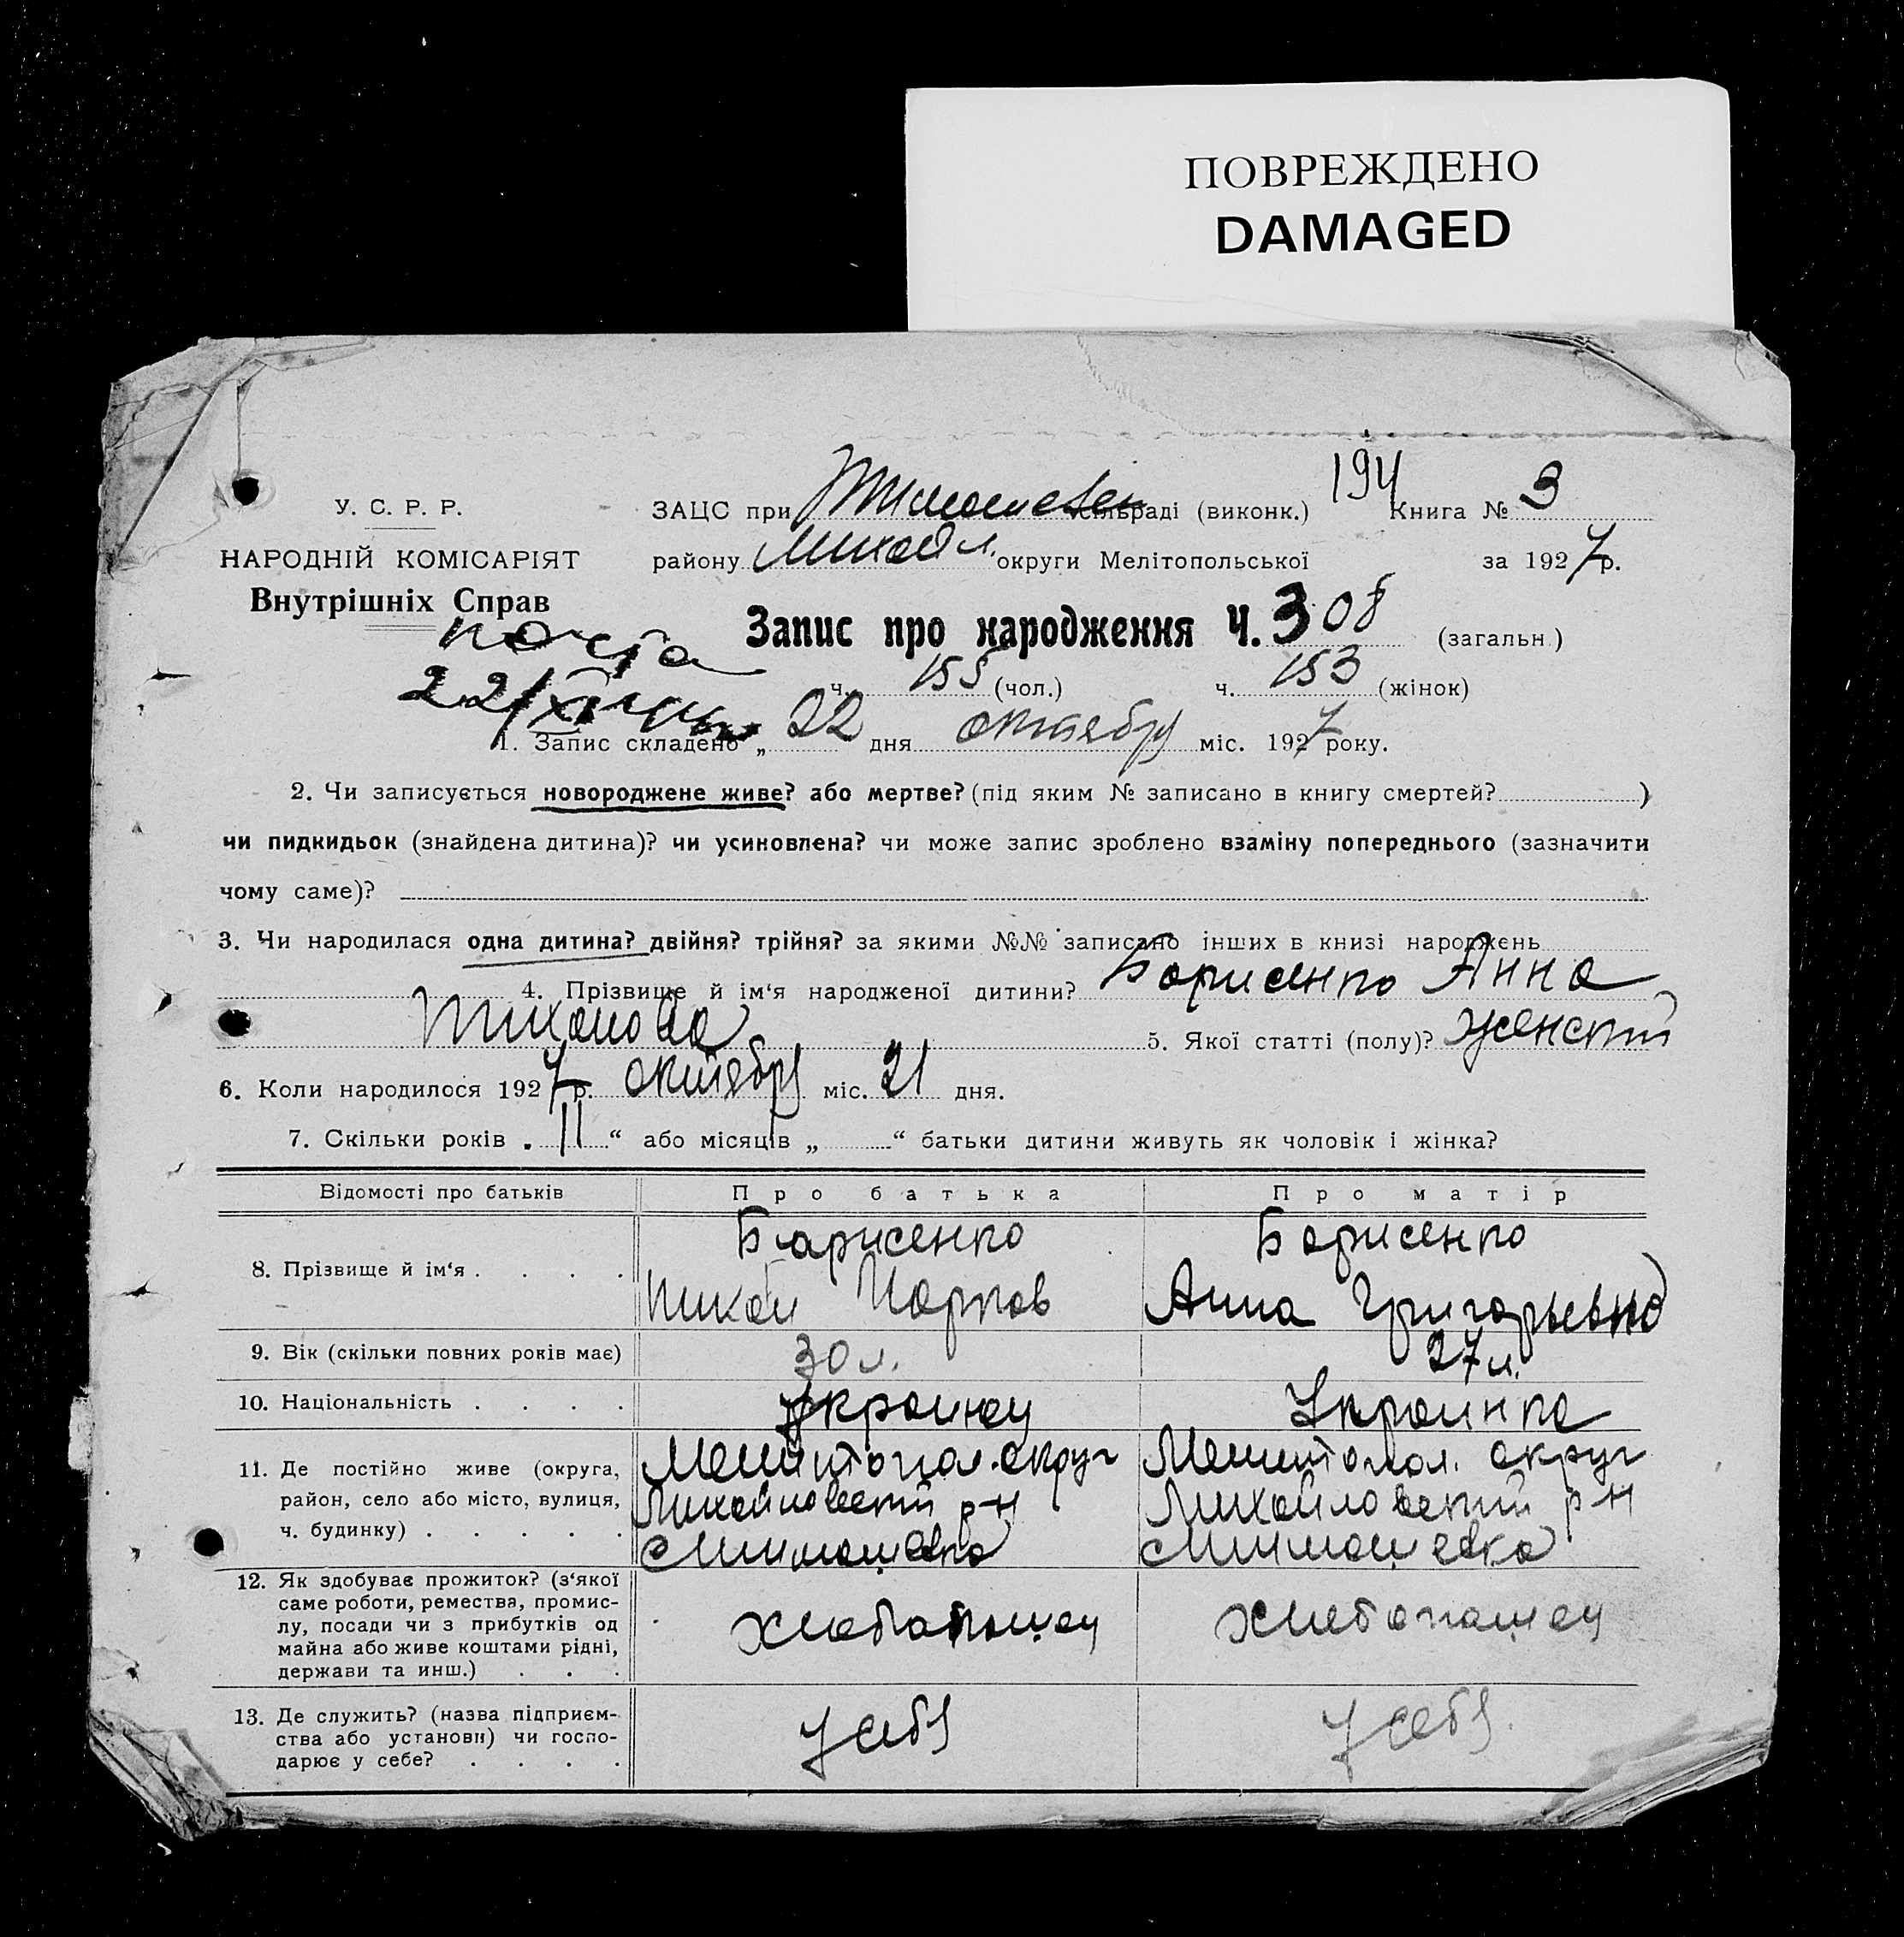 ПОВРЕЖДЕНО
DAMAGED
У. С. Р. Р.
НАРОДНІЙ КОМІСАРІЯТ
Внутрішніх Справ
ЗАЦС при Тимошевск сільраді (виконк.) 194 Книга № 3
району Михайл. округи Мелітопольської за 1927 р.
Запис про народження Ч. 308 (загальн.)
ч. 155 (чол.) ч. 153 (жінок)
1. Запис складено „ 22 дня октября міс. 1927 року.
2. Чи записується новороджене живе? або мертве? (під яким № записано в книгу смертей? )
чи пидкидьок (знайдена дитина)? чи усиновлена? чи може запис зроблено взаміну попереднього (зазначити
чому саме)?
3. Чи народилася одна дитина? двійня? трійня? за якими №№ записано інших в книзі народжень
4. Прізвище й ім'я народженої дитини? Борисенко Анна
Тиханова 5. Якої статті (полу)? женский
6. Коли народилося 1927 р. октября міс. 21 дня.
7. Скільки років „ 11 “ або місяців „ “ батьки дитини живуть як чоловік і жінка?
Відомості про батьків Про батька Про матір
8. Прізвище й ім'я . . . . Барисенко Борисенко
Анна Григорьевна
9. Вік (скільки повних років має) 30 л. 27 л.
10. Національність . . . . украинец Украинка
11. Де постійно живе (округа, район, село або місто, вулиця, ч. будинку) . . . . .
Мелитопол. округ Мелитопол. округ
Михайловский р-н Михайловский р-н
с Тимошевка с Тимошевка
12. Як здобуває прожиток? (з'якої
саме роботи, ремества, промис-
лу, посади чи з прибутків од
майна або живе коштами рідні,
держави та инш.) . . .
хлебопашец хлебопашец
13. Де служить? (назва підприєм-
ства або установи) чи госпо-
дарює у себе? . . . .
у себя у себя